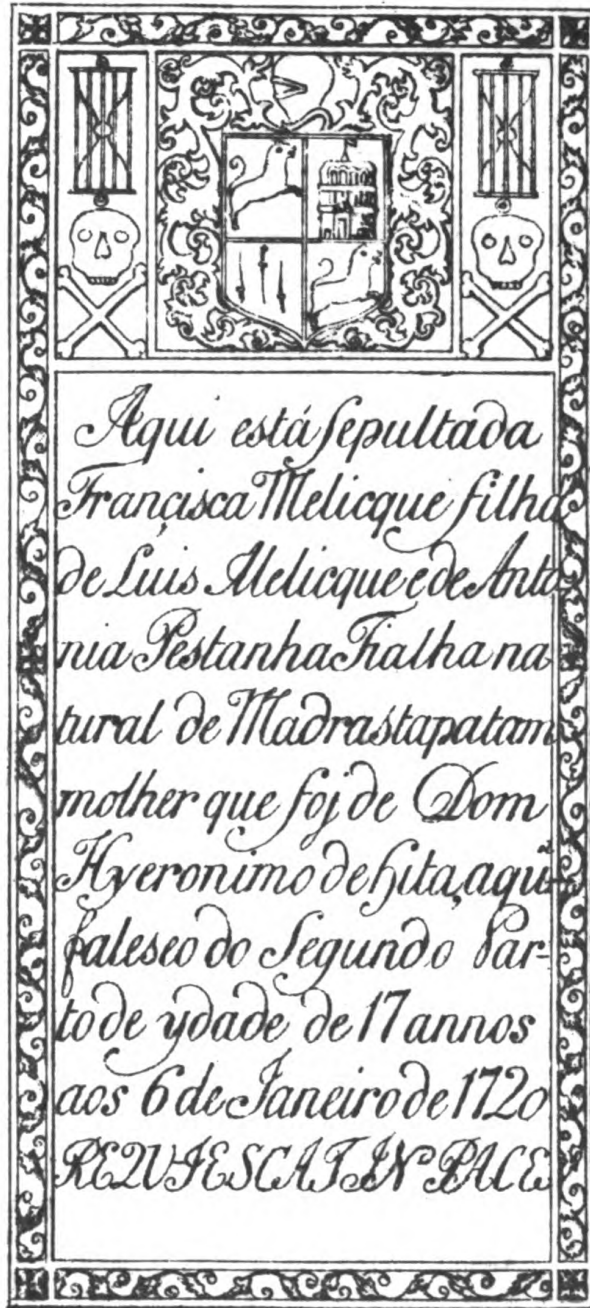 Aqui está sepultada
Francisca Melicque filha
de Luis Melicque e de Anto
nia Pestanha Fialha na
tural de Madrastapatam
molher que foj de Dom
Hyeronimo de hita, aqui
faleseo do segundo Par-
to de ydade de 17 annos
aos 6 de Janeiro de 1720
REQUIESCAT IN PACE